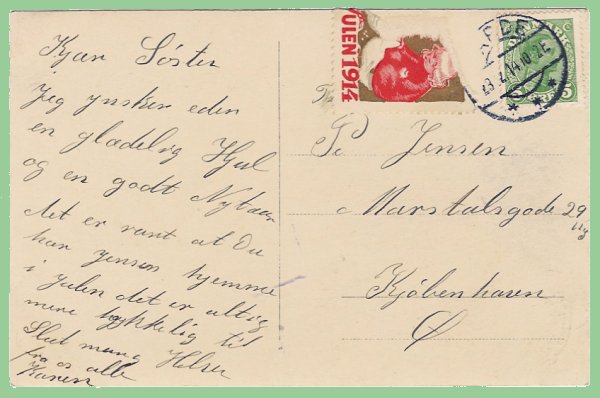 Kjær Søster
Jeg ynsker eder
en glædelig Hjul
og en godt Nytaar
det er rart at Du
har Jensen hjemme
i Julen det er altig
mere lykkelig til
Slut mang Helsen
fra os alle
Karen
ULEN 1914
DANMARK
5
Jensen
Marstalsgode 29
Kjöbenhaven
Ø